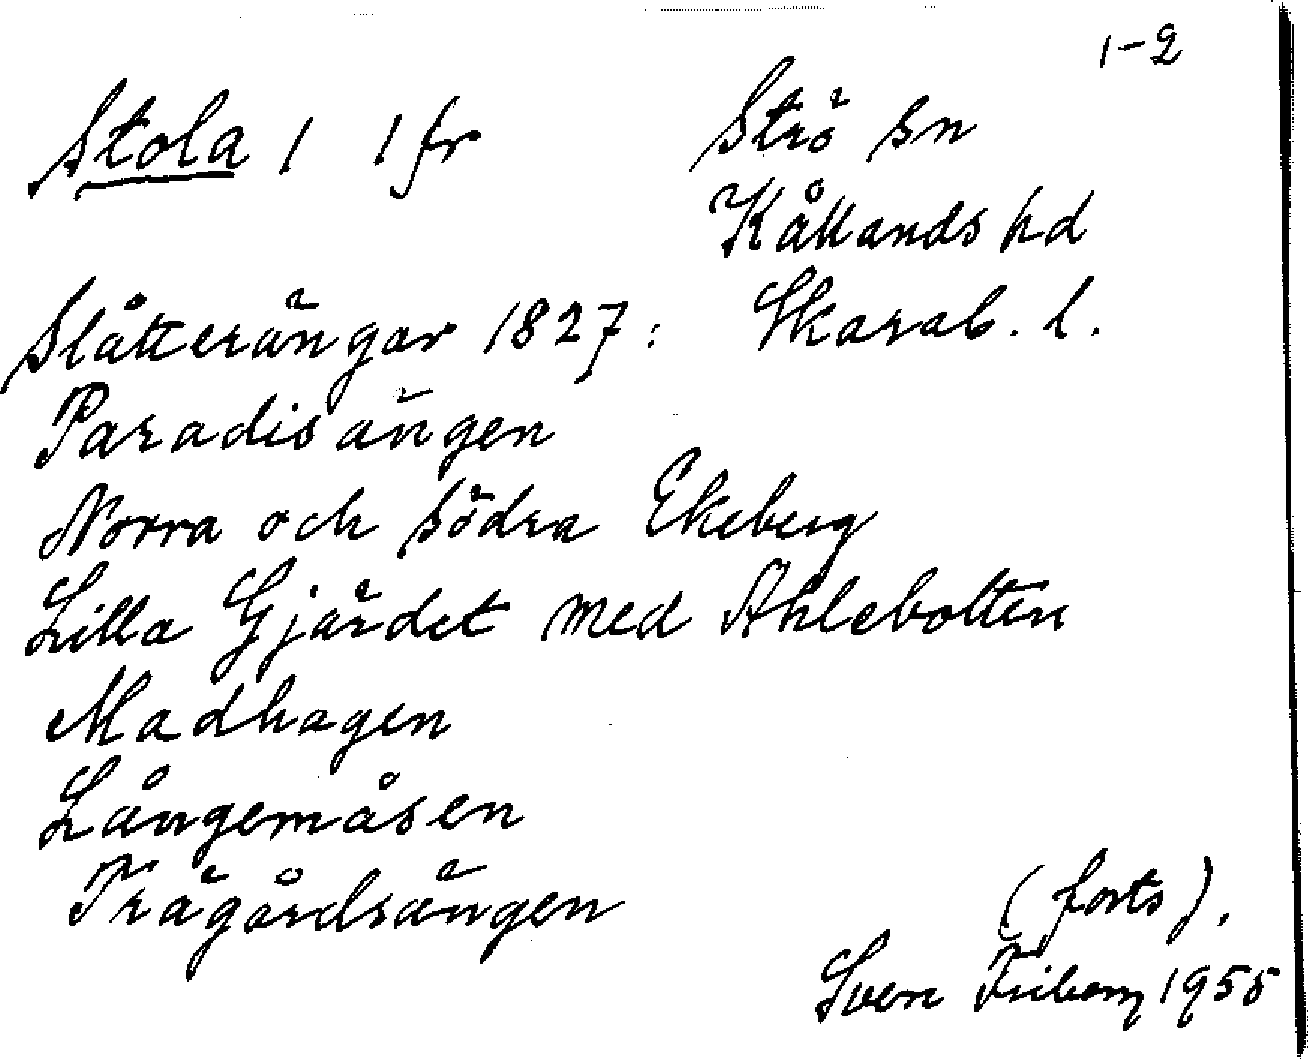 1-2
Stola 1 1 fr
Strö sn
Kållands hd
Skarab. l.
Slåtterängar 1827:
Paradisängen
Norra och södra Ekeberg
Lilla Gjärdet med Ahlebolten
Madhagen
Långemåsen
Trägårdsängen
(forts).
Sven Friberg 1955